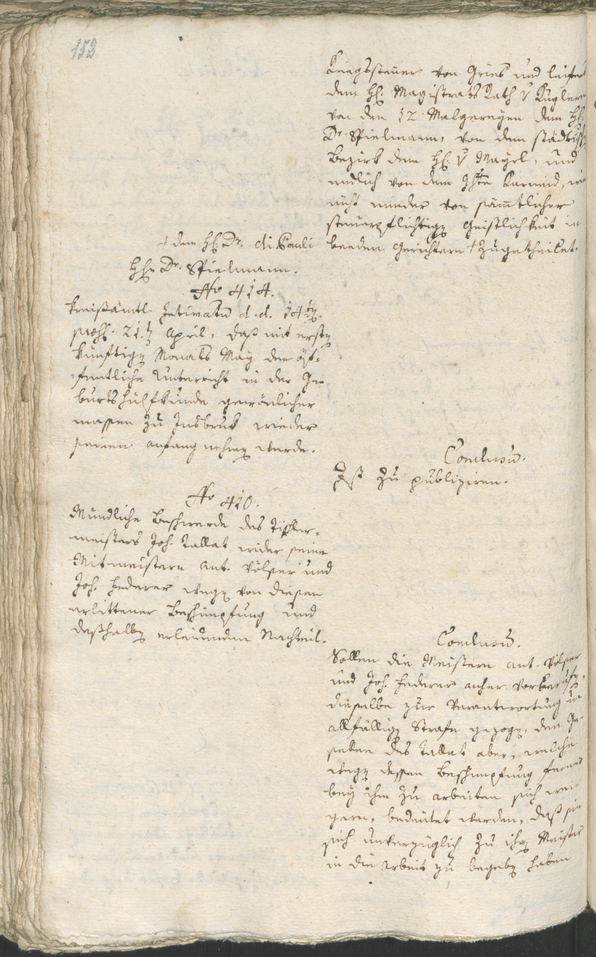 153
Kriegssteuer von Gries und leifers
dem H. Magistrats Rath v Kugler
von den 12 Malgereyen dem H.
Dr. Spielmann, von dem städtisch
Bezirk dem H. v Mayrl, und
endlich von dem Karneid,
nicht minder von sämmtlicher
steuerpflichtigen Geistlichkeit in
beeden Gerichtern + zugetheilet.
+ dem H. Dr. di Pauli
H. Dr. Spielmann.
No 414.
Kreißämtl. Intimatum d. d. 14
praes. 21 April, daß mit ersten
künftigen Monats May der öf-
fentliche Unterricht in der Ge-
burtshülfkunde gewöhnlicher
massen zu Insbruk wieder
seinen anfang nehmen werde.
Conclusum.
Ist zu publiziren.
No 410.
Mündliche Beschwerde des Tischler-
meisters Joh. Tallat wider seine
Mitmeistern Ant. Völser und
Joh. Hederer wegen von diesen
erlittener Beschimpfung und
deßhalben erleidenden Nachteil.
Conclusum.
Sollen die Meistern Ant. Völser
und Joh. Hederer anher vorberufen
dieselbe zur Verantwortung und
allfälligen Strafe gezogen, den Ge-
sellen des Tallat aber, welche
wegen dessen Beschimpfung ferners
bey ihm zu arbeiten sich wei-
gern, bedeutet werden, daß sie
sich unverzüglich zu ihrem Meister
in die Arbeit zu begeben haben